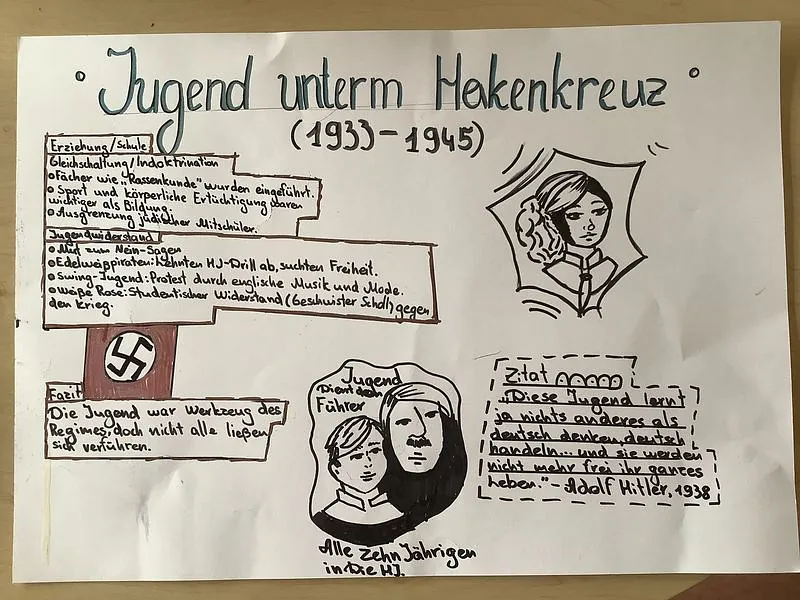 Jugend unterm Hakenkreuz
(1933-1945)
Erziehung/Schule
Gleichschaltung/Indoktrination
Fächer wie „Rassenkunde" wurden eingeführt.
Sport und körperliche Ertüchtigung waren
wichtiger als Bildung.
Ausgrenzung jüdischer Mitschüler.
Jugendwiderstand
Mut zum Nein-Sagen
Edelweißpiraten: Lehnten HJ-Drill ab, suchten Freiheit.
Swing-Jugend: Protest durch englische Musik und Mode.
Weiße Rose: Studentischer Widerstand (Geschwister Scholl) gegen
den Krieg.
Fazit
Die Jugend war Werkzeug des
Regimes, doch nicht alle ließen
sich verführen.
Jugend
Dient dem
Führer
Alle Zehn Jährigen
in Die HJ.
Zitat
„Diese Jugend lernt
ja nichts anderes als
deutsch denken, deutsch
handeln... und sie werden
nicht mehr frei ihr ganzes
Leben." - Adolf Hitler, 1938